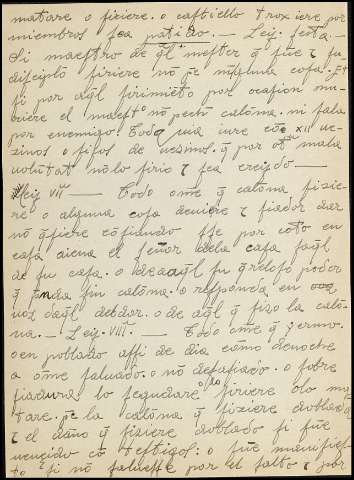 matare o firiere. o castiello troxiere por
miembros sea patido.— Ley. sesta—
Si maestro de ql mester q sue ɀ su
disciplo firiere nõ pe ninguna cosa. Et
si por aql firimiẽto por ocasion mu-
riere el maestº nõ pechi calõnia. ni sala
por enemigo. Toda via iure cõ XII ve-
zinos o fijos de vezinos. q por otª mala
volũtat no lo firio ɀ sea creydo —
Ley VIIª — Todo ome q calõnia fizie-
re o alguna cosa deviere ɀ fiador dar
nõ qsiere cõfiando sse por coto en
casa aiena el señor dela casa saql
de su casa. o de aql su
q rinda sin calõnia. o responda en
voz daql debdor. o de aql q fizo la calõ-
nia.— Ley. VIIIª. — Todo ome q yermo.
o en poblado assi de dia como de noche
a ome saluado. o nõ desafiado. o sobre
fiadura. lo segudare o lo firiere o lo ma-
tare. pe la calõnia q fiziere doblada
ɀ el daño q fiziere doblado si fue
vencido cõ testigos: o sue manifies-
to si nõ saluesse por el salto ɀ por